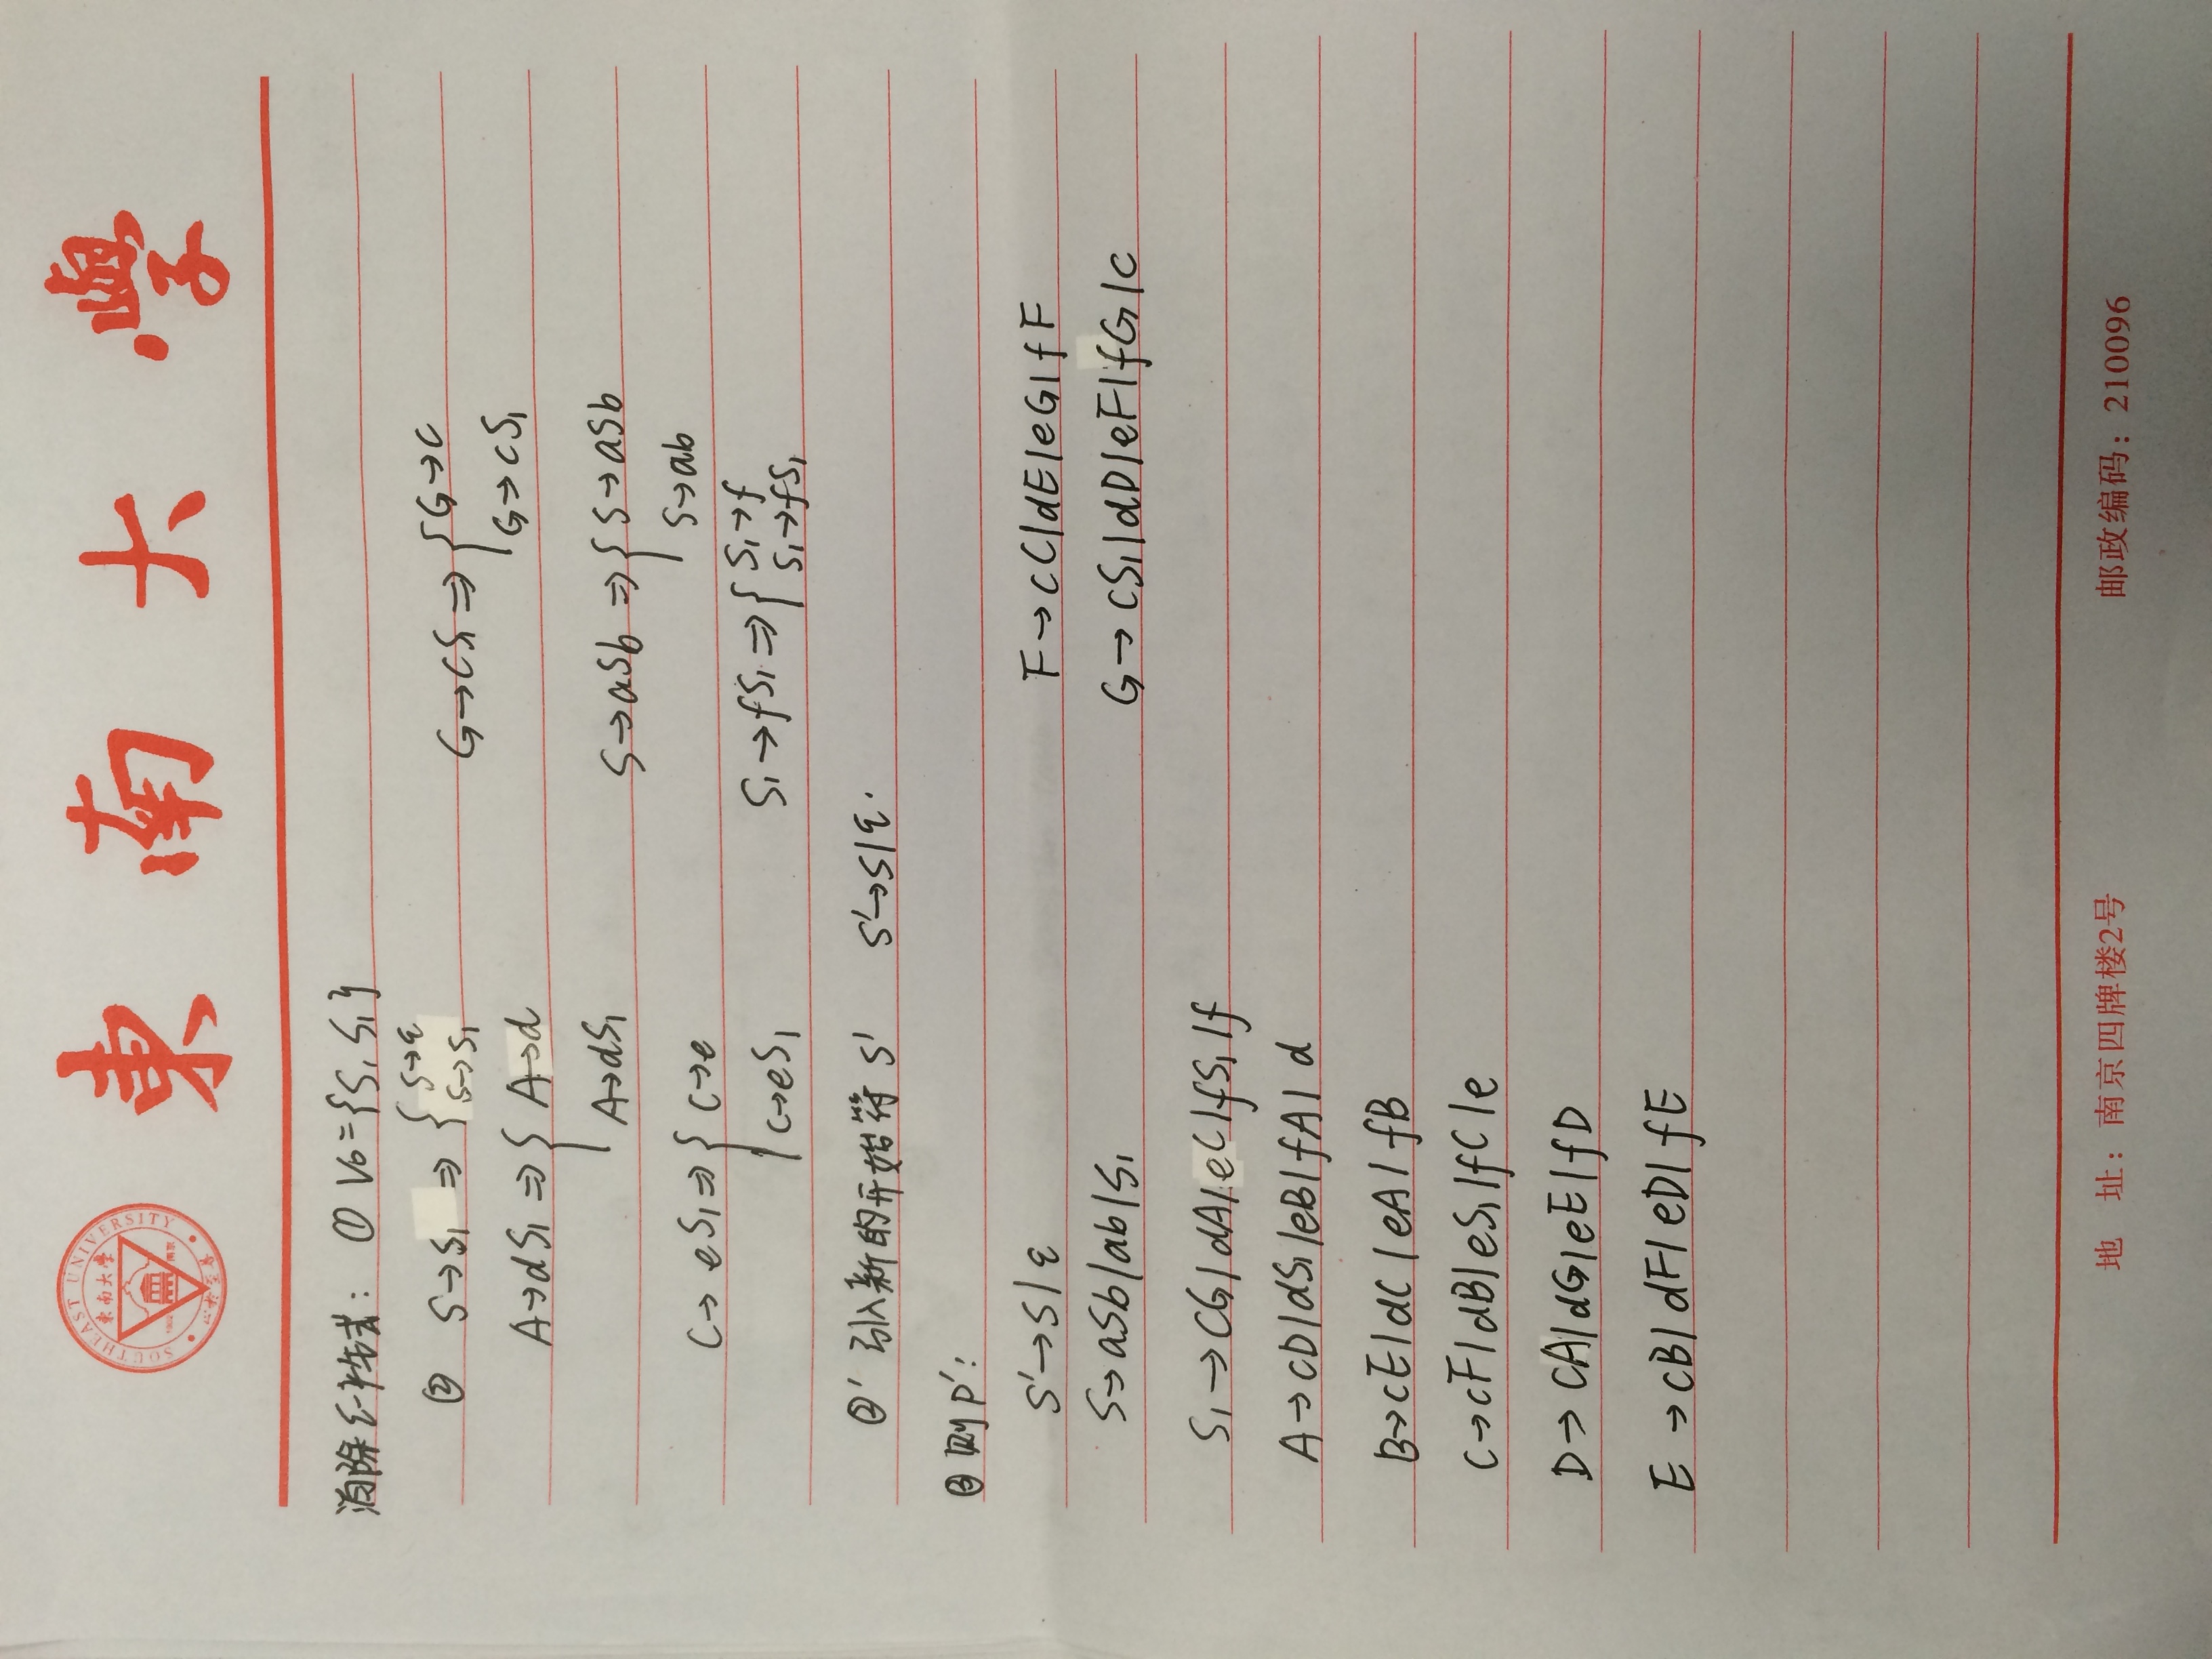 SOUTHEAST UNIVERSITY
東南大學
1902 南京
東南大學
消除ε-产生式: ① V₀={S, S₁}
② S→S₁ ⇒ { S→ε
S→S₁
G→cS₁ ⇒ { G→c
G→cS₁
A→dS₁ ⇒ { A→d
A→dS₁
S→aSb ⇒ { S→aSb
S→ab
C→eS₁ ⇒ { C→e
C→eS₁
S₁→fS₁ ⇒ { S₁→f
S₁→fS₁
②' 引入新的开始符 S' S'→S|ε.
③ 则P':
S'→S|ε
S→aSb|ab|S₁
S₁→CG|dA|eC|fS₁|f
A→cD|dS₁|eB|fA|d
B→cE|dC|eA|fB
C→cF|dB|eS₁|fC|e
D→CA|dG|eE|fD
E→cB|dF|eD|fE
F→cC|dE|eG|fF
G→cS₁|dD|eF|fG|c
地 址：南京四牌楼2号
邮政编码：210096